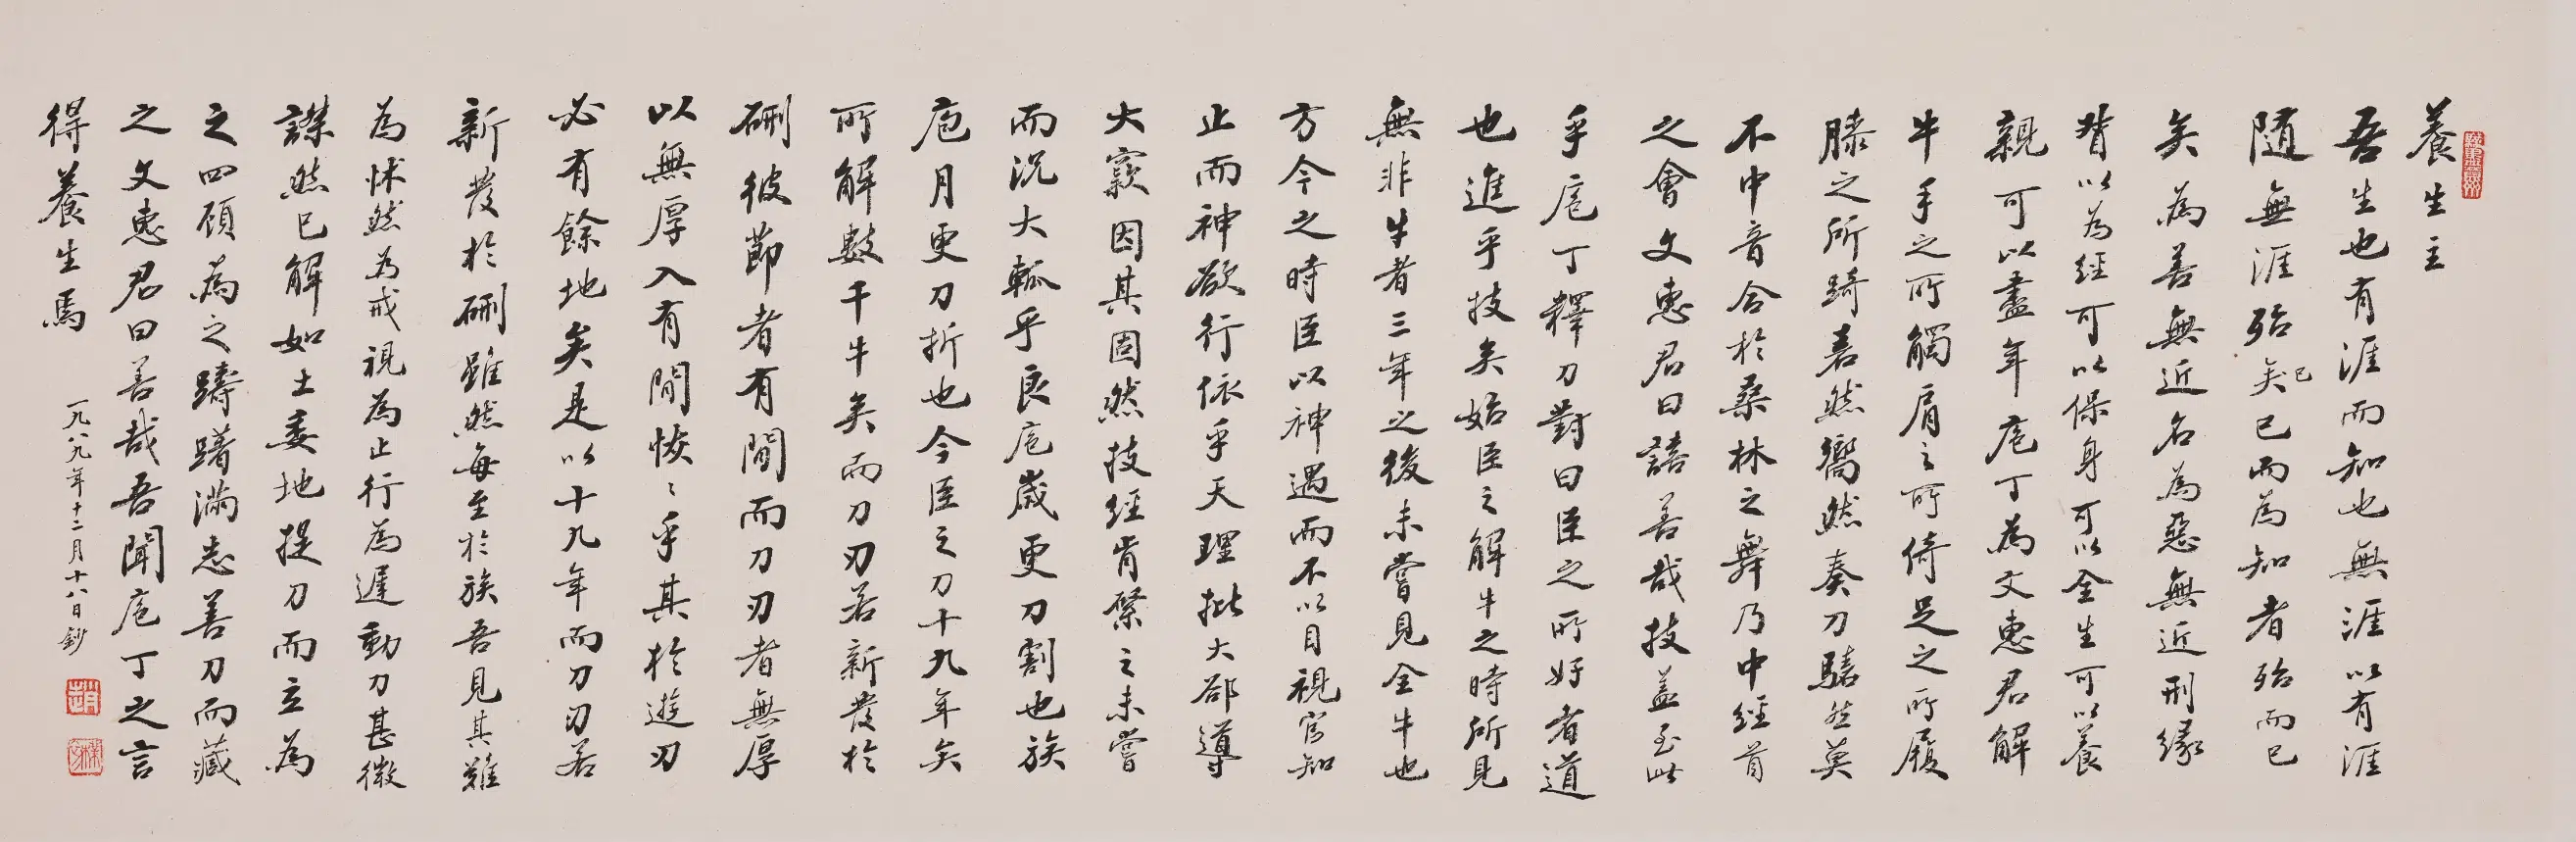 養生主
吾生也有涯而知也無涯以有涯
隨無涯殆矣已已而為知者殆而已
矣為善無近名為惡無近刑緣
督以為經可以保身可以全生可以養
親可以盡年庖丁為文惠君解
牛手之所觸肩之所倚足之所履
膝之所踦砉然嚮然奏刀騞然莫
不中音合於桑林之舞乃中經首
之會文惠君曰譆善哉技蓋至此
乎庖丁釋刀對曰臣之所好者道
也進乎技矣始臣之解牛之時所見
無非牛者三年之後未嘗見全牛也
方今之時臣以神遇而不以目視官知
止而神欲行依乎天理批大郤導
大窾因其固然技經肯綮之未嘗
而況大軱乎良庖歲更刀割也族
庖月更刀折也今臣之刀十九年矣
所解數千牛矣而刀刃若新發於
硎彼節者有間而刀刃者無厚
以無厚入有間恢〻乎其於遊刃
必有餘地矣是以十九年而刀刃若
新發於硎雖然每至於族吾見其難
為怵然為戒視為止行為遲動刀甚微
謋然已解如土委地提刀而立為
之四顧為之躊躇滿志善刀而藏
之文惠君曰善哉吾聞庖丁之言
得養生焉
一九八九年十二月十八日鈔